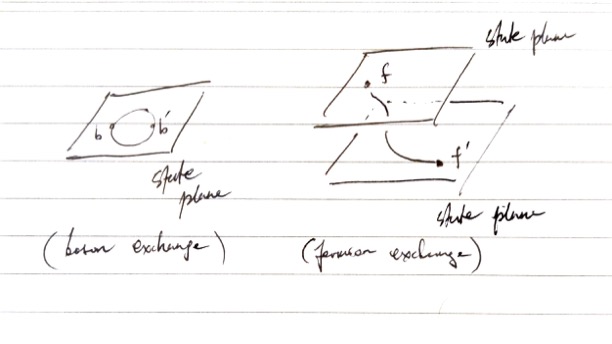 state plane
f
b b'
f'
state
plane
state plane
(boson exchange)
(fermion exchange)